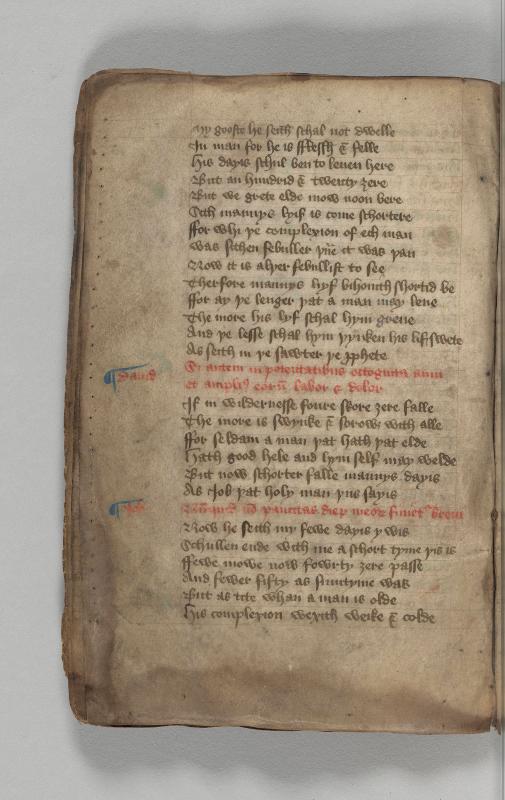 My gooste he seith schal not dwelle
In man for he is fflessh & felle
His dayis schul ben to leuen here
But an hundrid & twenty ȝere
But we grete elde mow noon bere
Sith mannys lyif is come schortere
ffor whi þe complexion of ech man
was sithen febuller þāne it was þan
Now it is alþer febullist to see
Therfore mannys lyf bihouith schortid be
ffor ay þe lenger þat a man may leue
The more his lyf schal hym greue
And þe lesse schal hym þynken his lif swete
As seith in þe sawter þe ꝓphete
dauid Si autem in potentatibus octoginta anni
et amplius eorū labor & dolor
If in wildernesse foure skore ȝere falle
The more is swynke & sorow with alle
ffor seldam a man þat hath þat elde
Hath good hele and hym self may welde
But now schorter falle mannys dayis
As Job þat holy man þus sayis
Job paucitas dierū meorū finiet breui
Now he seith my fewe dayis y wis
Schullen ende with me a schort tyme þis is
ffewe mowe now fowrty ȝere passe
And fewer fifty as sumtyme was
But as tite whan a man is olde
His complexion wexith weike & colde